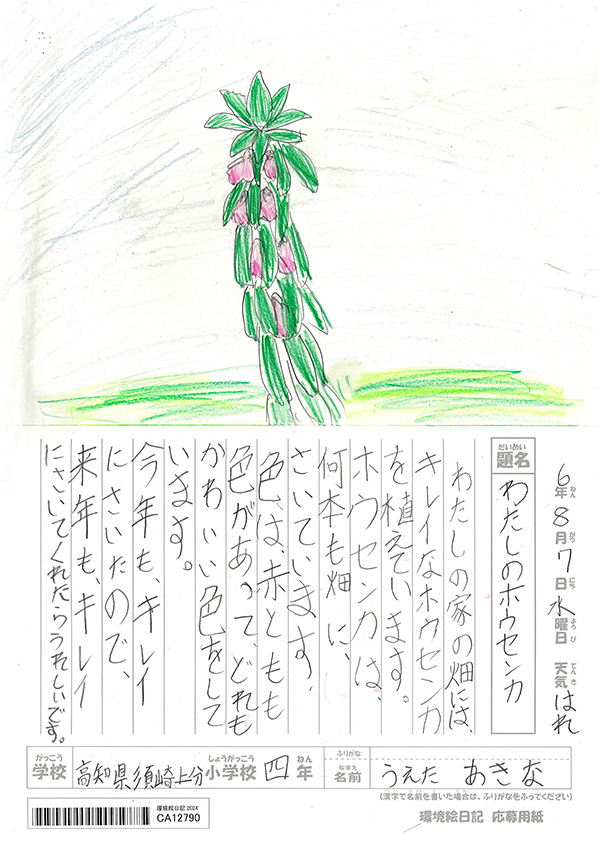 6年8月7日水曜日 天気はれ
題名 わたしのホウセンカ
わたしの家の畑には、
キレイなホウセンカ
を植えています。
ホウセンカは、
何本も畑に、
さいています。
色は、赤ともも
色があって、どれも
かわいい色をして
います。
今年も、キレイ
にさいたので、
来年も、キレイ
にさいてくれたらうれしいです。
学校 高知県須崎上分小学校 四年
ふりがな
名前 うえた あきな
(漢字で名前を書いた場合は、ふりがなをふってください)
環境絵日記 応募用紙
環境絵日記 2024
CA12790